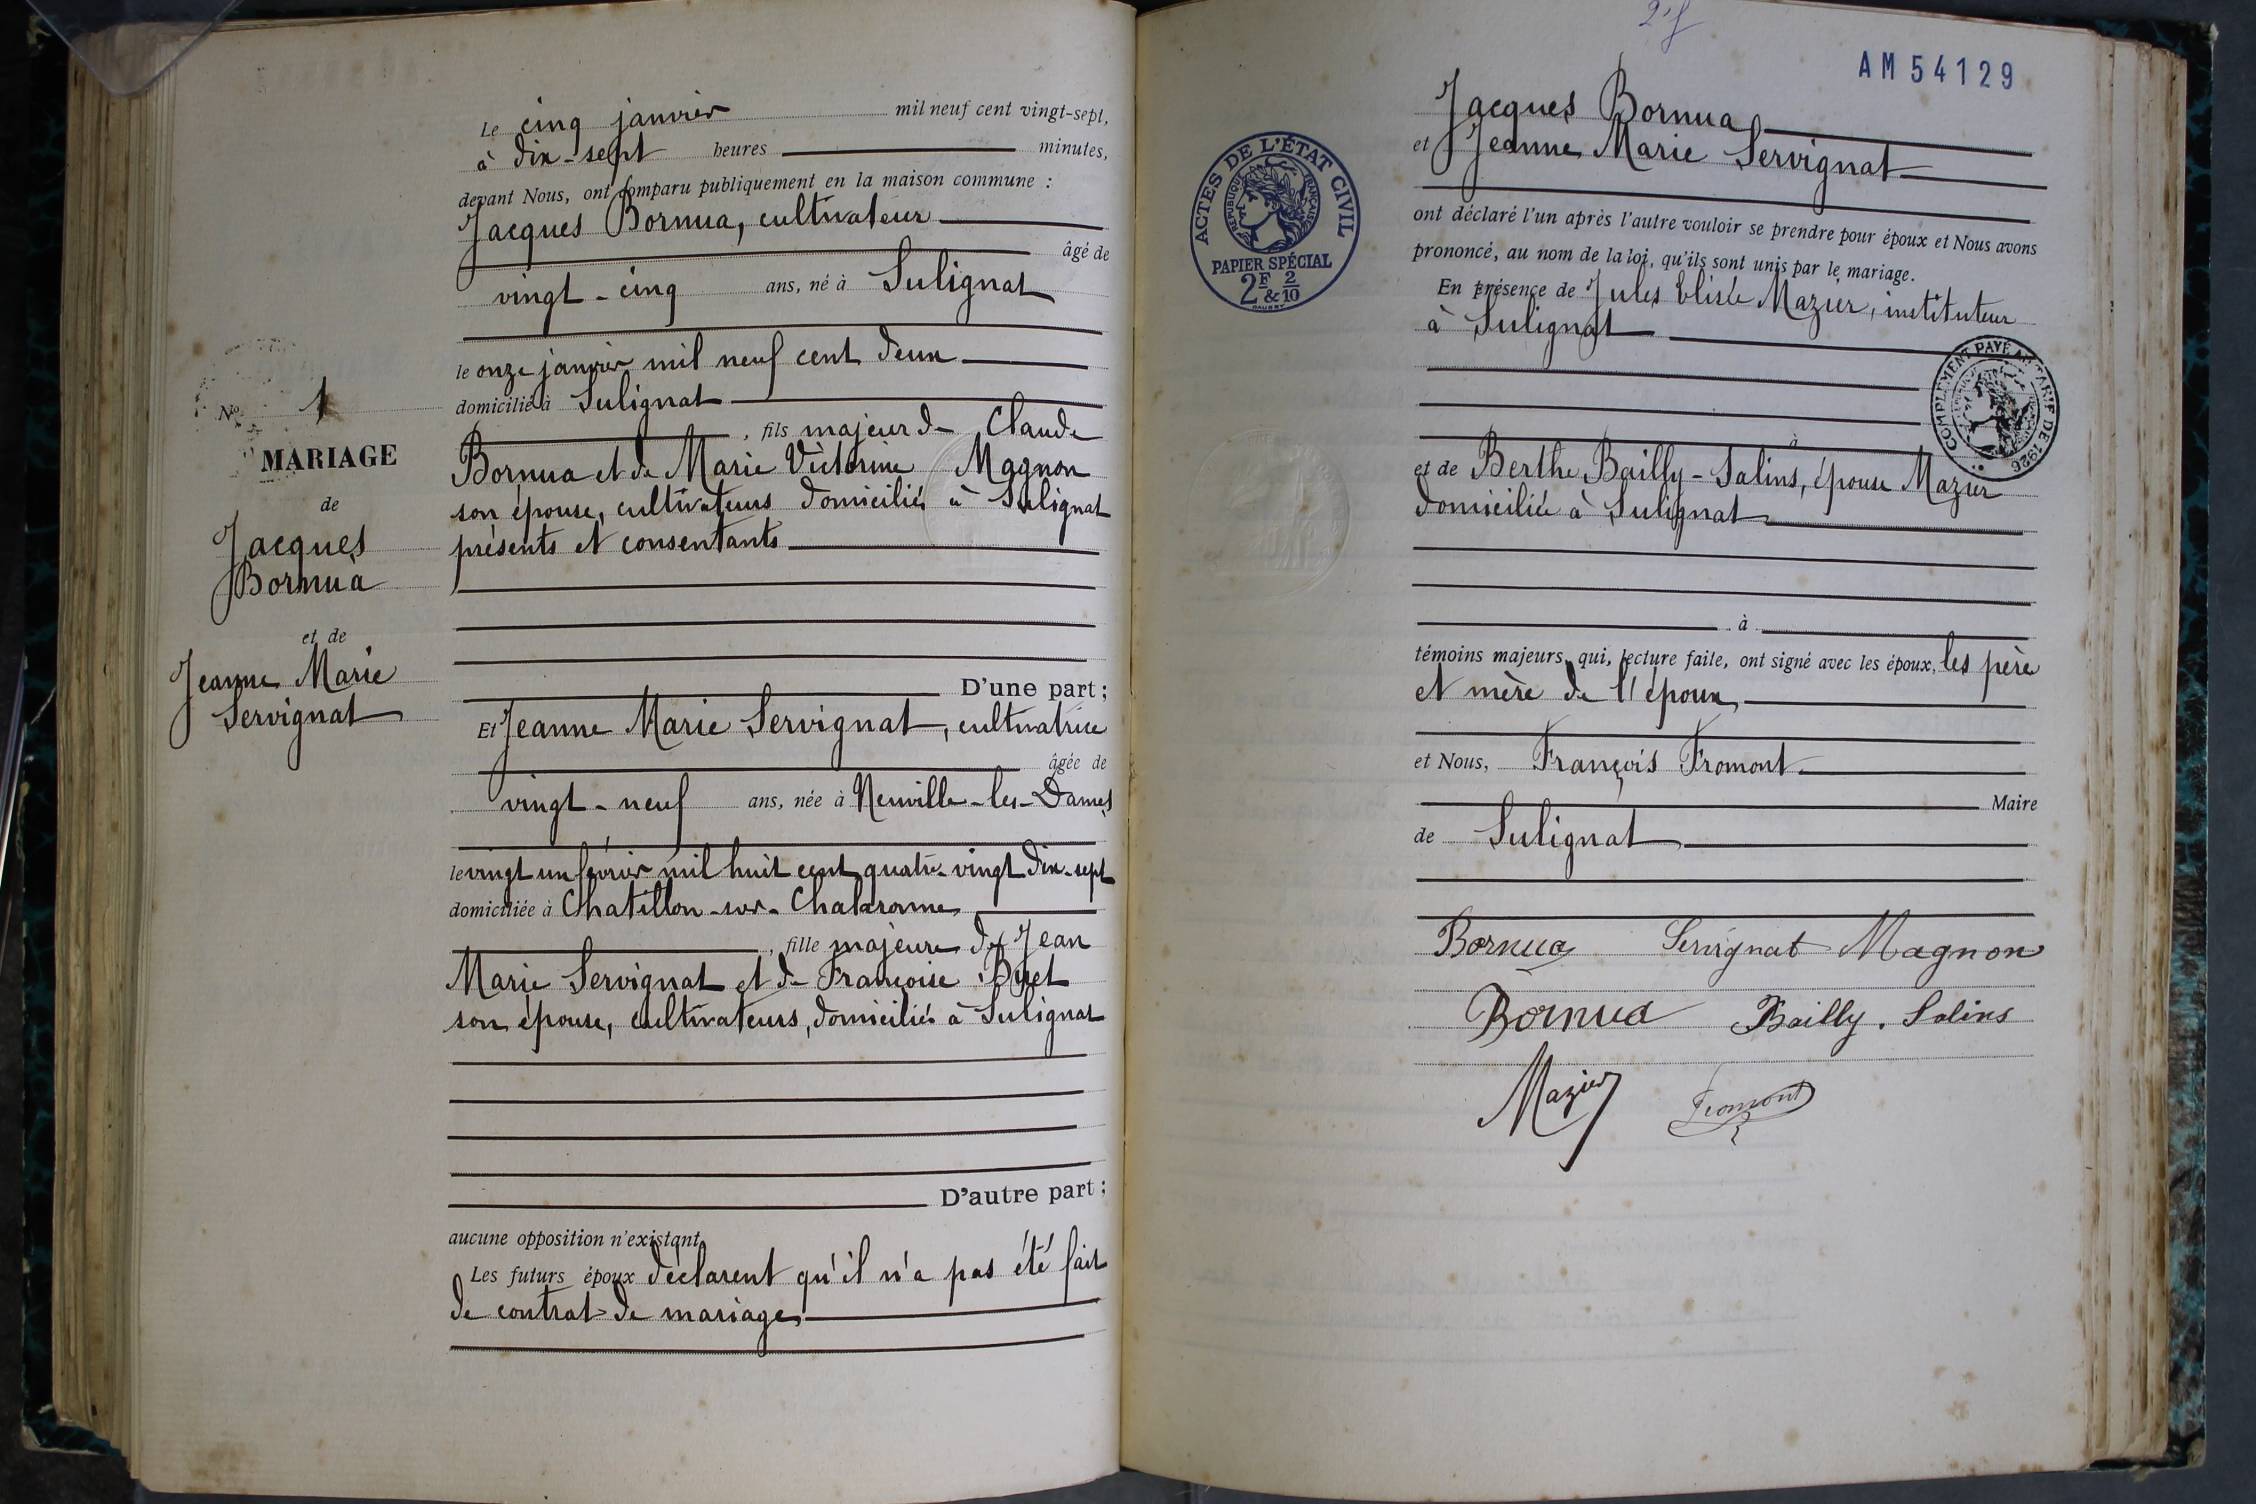 Le cinq janvier mil neuf cent vingt-sept,
à dix-sept heures minutes,
devant Nous, ont comparu publiquement en la maison commune :
Jacques Bornua, cultivateur
âgé de
vingt-cinq ans, né à Sulignat
le onze janvier mil neuf cent deux
domicilié à Sulignat
, fils majeur de Claude
Bornua et de Marie Victorine Magnon
son épouse, cultivateurs domiciliés à Sulignat
présents et consentants
D'une part ;
Et Jeanne Marie Servignat, cultivatrice
âgée de
vingt-neuf ans, née à Neuville-les-Dames
le vingt un février mil huit cent quatre-vingt dix-sept
domiciliée à Chatillon-sur-Chalaronne
, fille majeure de Jean
Marie Servignat et de Françoise Buet
son épouse, cultivateurs, domiciliés à Sulignat
D'autre part ;
aucune opposition n'existant
Les futurs époux déclarent qu'il n'a pas été fait
de contrat de mariage
No 1
MARIAGE
de
Jacques
Bornua
et de
Jeanne Marie
Servignat
AM 54129
ACTES DE L'ÉTAT CIVIL
RÉPUBLIQUE FRANÇAISE
PAPIER SPÉCIAL
2F & 2/10
Jacques Bornua
et Jeanne Marie Servignat
ont déclaré l'un après l'autre vouloir se prendre pour époux et Nous avons
prononcé, au nom de la loi, qu'ils sont unis par le mariage.
En présence de Jules Elisée Mazier, instituteur
à Sulignat
COMPLÉMENT PAYÉ AU TARIF DE 1926
à
et de Berthe Bailly-Salins, épouse Mazier
domiciliée à Sulignat
à
témoins majeurs, qui, lecture faite, ont signé avec les époux, les père
et mère de l'époux
et Nous, François Fromont
Maire
de Sulignat
Bornua Servignat Magnon
Bornua Bailly. Salins
Mazier Fromont